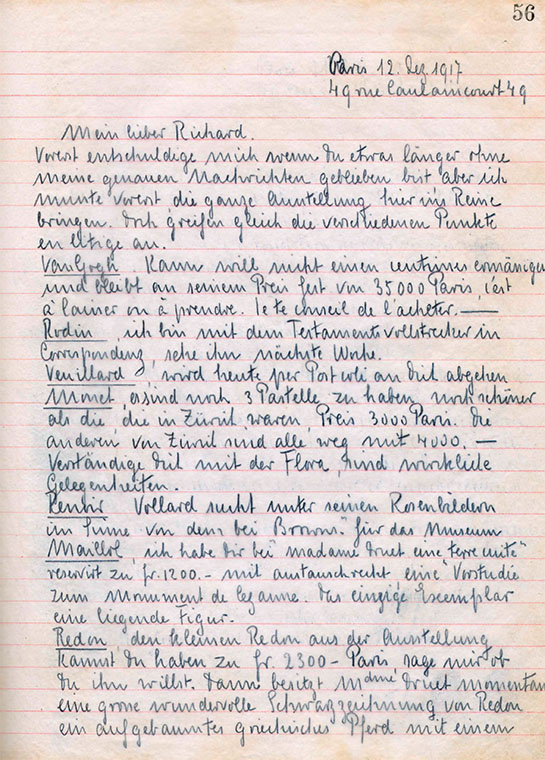 56
Paris 12. Dez 1917
49 rue Caulaincourt 49
Mein lieber Richard.
Vorerst entschuldige mich wenn du etwas länger ohne
meine genauen Nachrichten geblieben bist aber ich
musste vorerst die ganze Austellung hier ins Reine
bringen. Doch greifen gleich die verschiedenen Punkte
en litige an.
VanGogh. Kann will nicht einen centimes ermässigen
und bleibt an seinem Preis fest von 35000 Paris, c'est
à laisser ou à prendre. Je te conseil de l'acheter. —
Rodin, ich bin mit dem Testamentsvollstrecker in
Correspondenz, sehe ihn nächste Woche.
Vuillard, wird heute per Postcoli an dich abgehen
Monet, es sind noch 3 Pastelle zu haben, noch schöner
als die, die in Zürich waren, Preis 3000 Paris. Die
anderen von Zürich sind alle weg mit 4000. —
Verständige dich mit der Flora, sind wirkliche
Gelegenheiten.
Renoir Vollard sucht unter seinen Rosenbildern
im Sinne von dem bei Browns." für das Museum
Maillol, ich habe dir bei "madame Druet eine terre cuite"
reservirt zu fr. 1200.- mit austauschrecht eine "Vorstudie
zum Monument de Cezanne. das einzige Exemplar
eine liegende Figur.
Redon, den kleinen Redon aus der Ausstellung
kannst du haben zu fr. 2300 - Paris, sage mir ob
du ihn willst. Dann besitzt Mdme Druet momentan
eine grosse wundervolle Schwarzzeichnung von Redon
ein aufgebäumtes griechisches Pferd mit einem